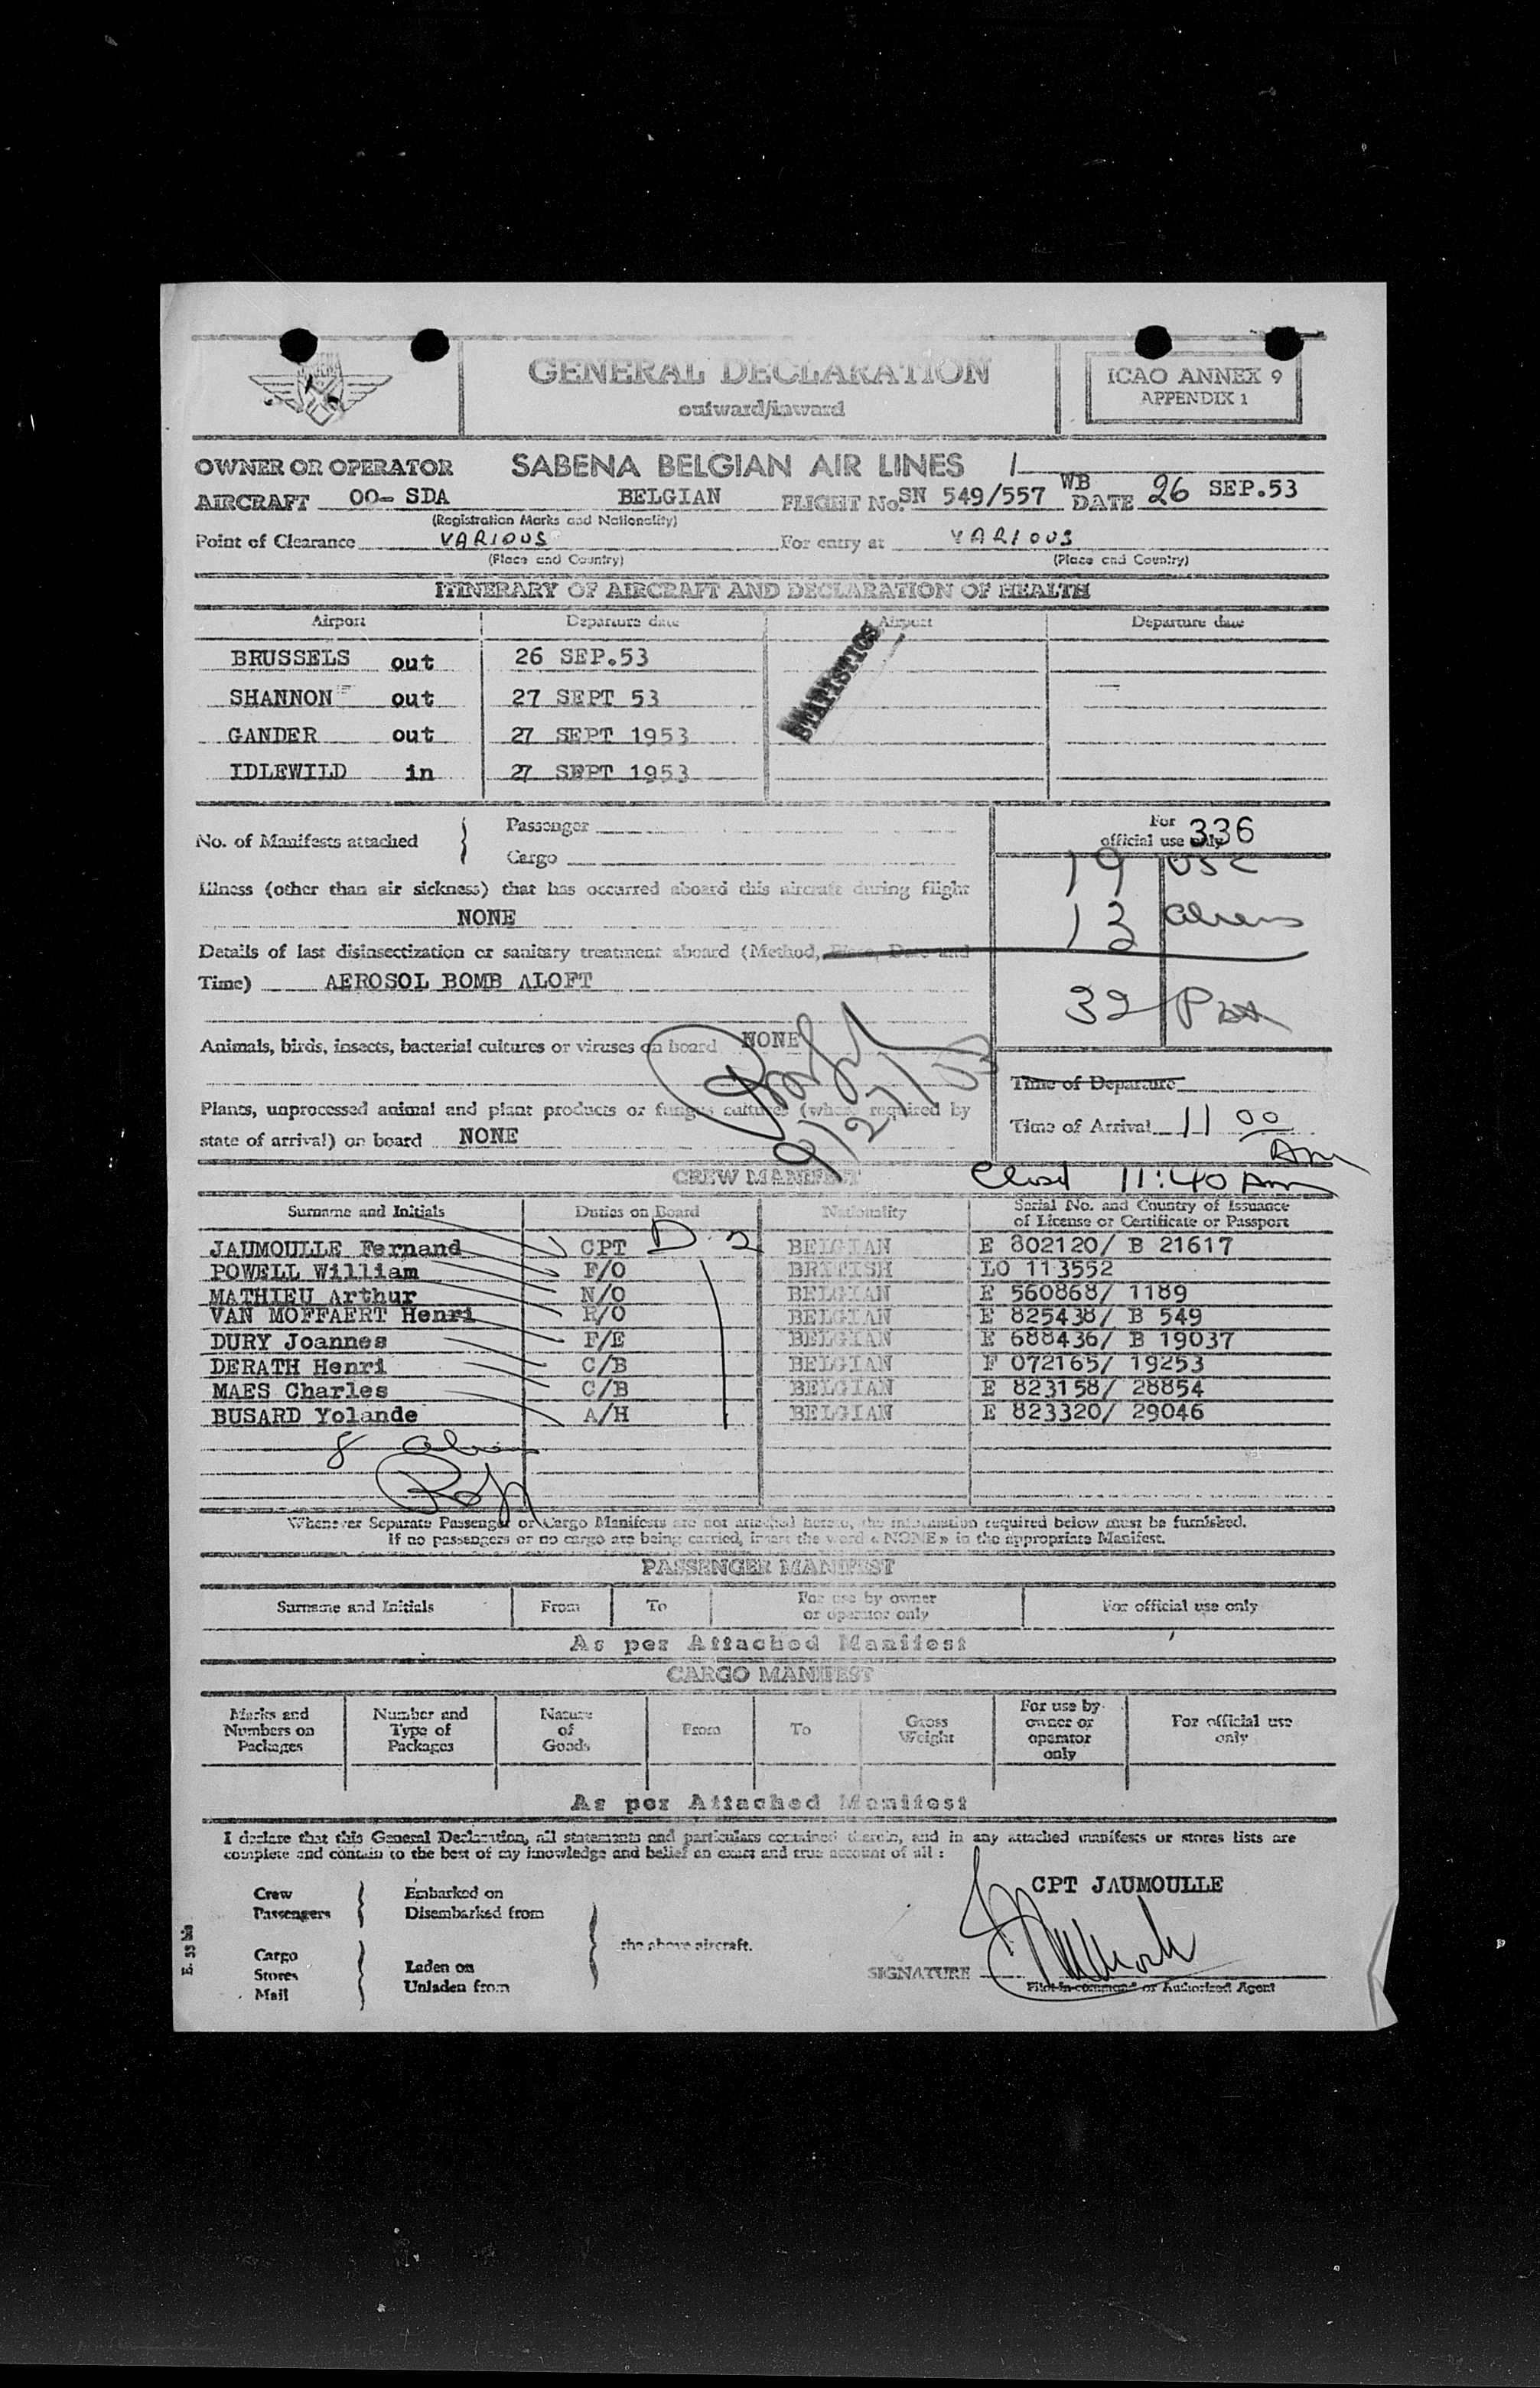 SABENA
GENERAL DECLARATION
outward/inward
ICAO ANNEX 9
APPENDIX 1
OWNER OR OPERATOR SABENA BELGIAN AIR LINES 1
AIRCRAFT OO- SDA BELGIAN FLIGHT No. SN 549/557 WB DATE 26 SEP.53
(Registration Marks and Nationality)
Point of Clearance VARIOUS For entry at VARIOUS
(Place and Country) (Place and Country)
ITINERARY OF AIRCRAFT AND DECLARATION OF HEALTH
Airport Departure date Airport Departure date
BRUSSELS out 26 SEP.53
SHANNON out 27 SEPT 53
GANDER out 27 SEPT 1953
IDLEWILD in 27 SEPT 1953
STATISTICS
No. of Manifests attached } Passenger
Cargo
For official use only 336
19 USC
13 aliens
32 Pax
Illness (other than air sickness) that has occurred aboard this aircraft during flight
NONE
Details of last disinsectization or sanitary treatment aboard (Method, Place, Date and
Time) AEROSOL BOMB ALOFT
Animals, birds, insects, bacterial cultures or viruses on board NONE
9/27/53
Plants, unprocessed animal and plant products or fungus cultures (where required by
state of arrival) on board NONE
Time of Departure
Time of Arrival 11 00 Am
Closed 11:40 Am
CREW MANIFEST
Surname and Initials Duties on Board Nationality Serial No. and Country of Issuance
of License or Certificate or Passport
D 2
JAUMOULLE Fernand CPT BELGIAN E 802120/ B 21617
POWELL William F/O BRITISH LO 113552
MATHIEU Arthur N/O BELGIAN E 560868/ 1189
VAN MOFFAERT Henri R/O BELGIAN E 825438/ B 549
DURY Joannes F/E BELGIAN E 688436/ B 19037
DERATH Henri C/B BELGIAN F 072165/ 19253
MAES Charles C/B BELGIAN E 823158/ 28854
BUSARD Yolande A/H BELGIAN E 823320/ 29046
8 aliens
Whenever Separate Passenger or Cargo Manifests are not attached hereto, the information required below must be furnished.
If no passengers or no cargo are being carried, insert the word « NONE » in the appropriate Manifest.
PASSENGER MANIFEST
Surname and Initials From To For use by owner or operator only For official use only
As per Attached Manifest
CARGO MANIFEST
Marks and Numbers on Packages Number and Type of Packages Nature of Goods From To Gross Weight For use by owner or operator only For official use only
As per Attached Manifest
I declare that this General Declaration, all statements and particulars contained therein, and in any attached manifests or stores lists are
complete and contain to the best of my knowledge and belief an exact and true account of all :
CPT JAUMOULLE
Crew Embarked on
Passengers Disembarked from
the above aircraft.
Cargo
Stores Laden on
Mail Unladen from
SIGNATURE
Pilot-in-command or Authorized Agent